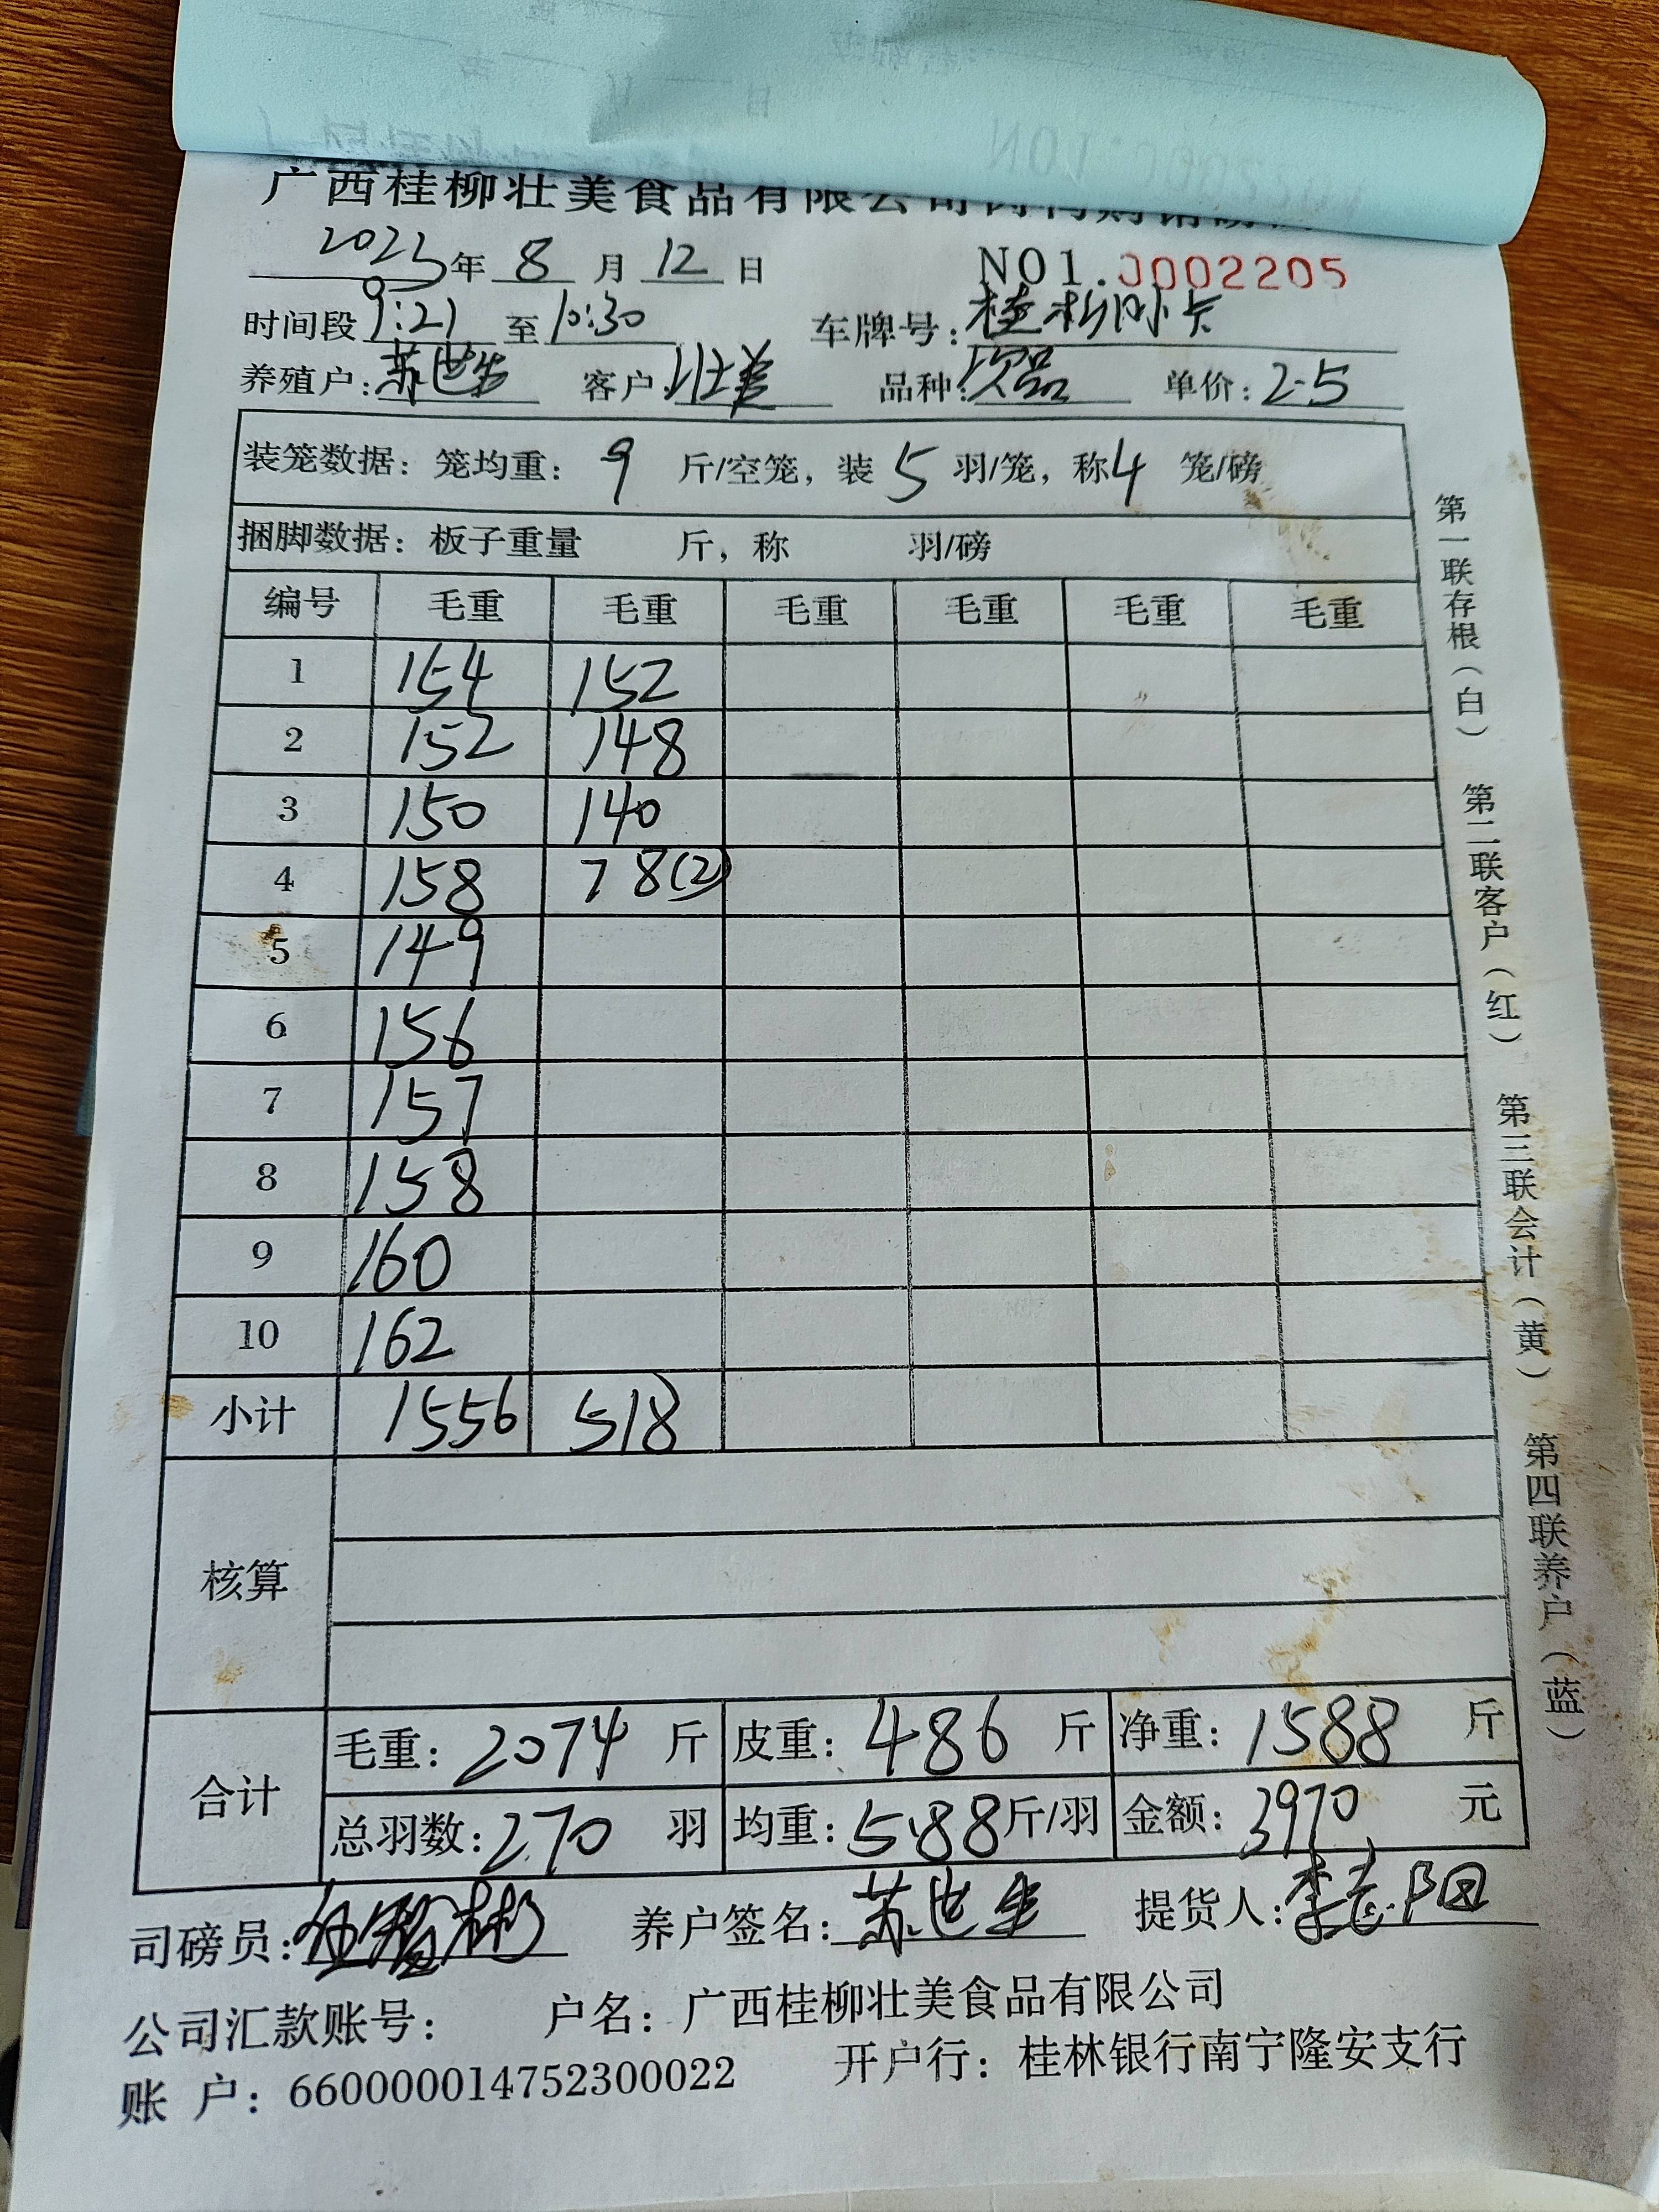 广西桂柳壮美食品有限公司
2023年 8 月 12 日 NO1.0002205
时间段 9:21 至 10:30 车牌号: 桂柳小卡
养殖户: 苏世生 客户: 壮美 品种: 次品 单价: 2.5
装笼数据: 笼均重: 9 斤/空笼, 装 5 羽/笼, 称 4 笼/磅
捆脚数据: 板子重量 斤, 称 羽/磅
编号 毛重 毛重 毛重 毛重 毛重 毛重
1 154 152
2 152 148
3 150 140
4 158 78(2)
5 149
6 156
7 157
8 158
9 160
10 162
小计 1556 518
核算
合计
毛重: 2074 斤 皮重: 486 斤 净重: 1588 斤
总羽数: 270 羽 均重: 5.88 斤/羽 金额: 3970 元
司磅员: 养户签名: 苏世生 提货人: 李志阳
公司汇款账号: 户名: 广西桂柳壮美食品有限公司
账 户: 660000014752300022 开户行: 桂林银行南宁隆安支行
第一联存根(白) 第二联客户(红) 第三联会计(黄) 第四联养户(蓝)